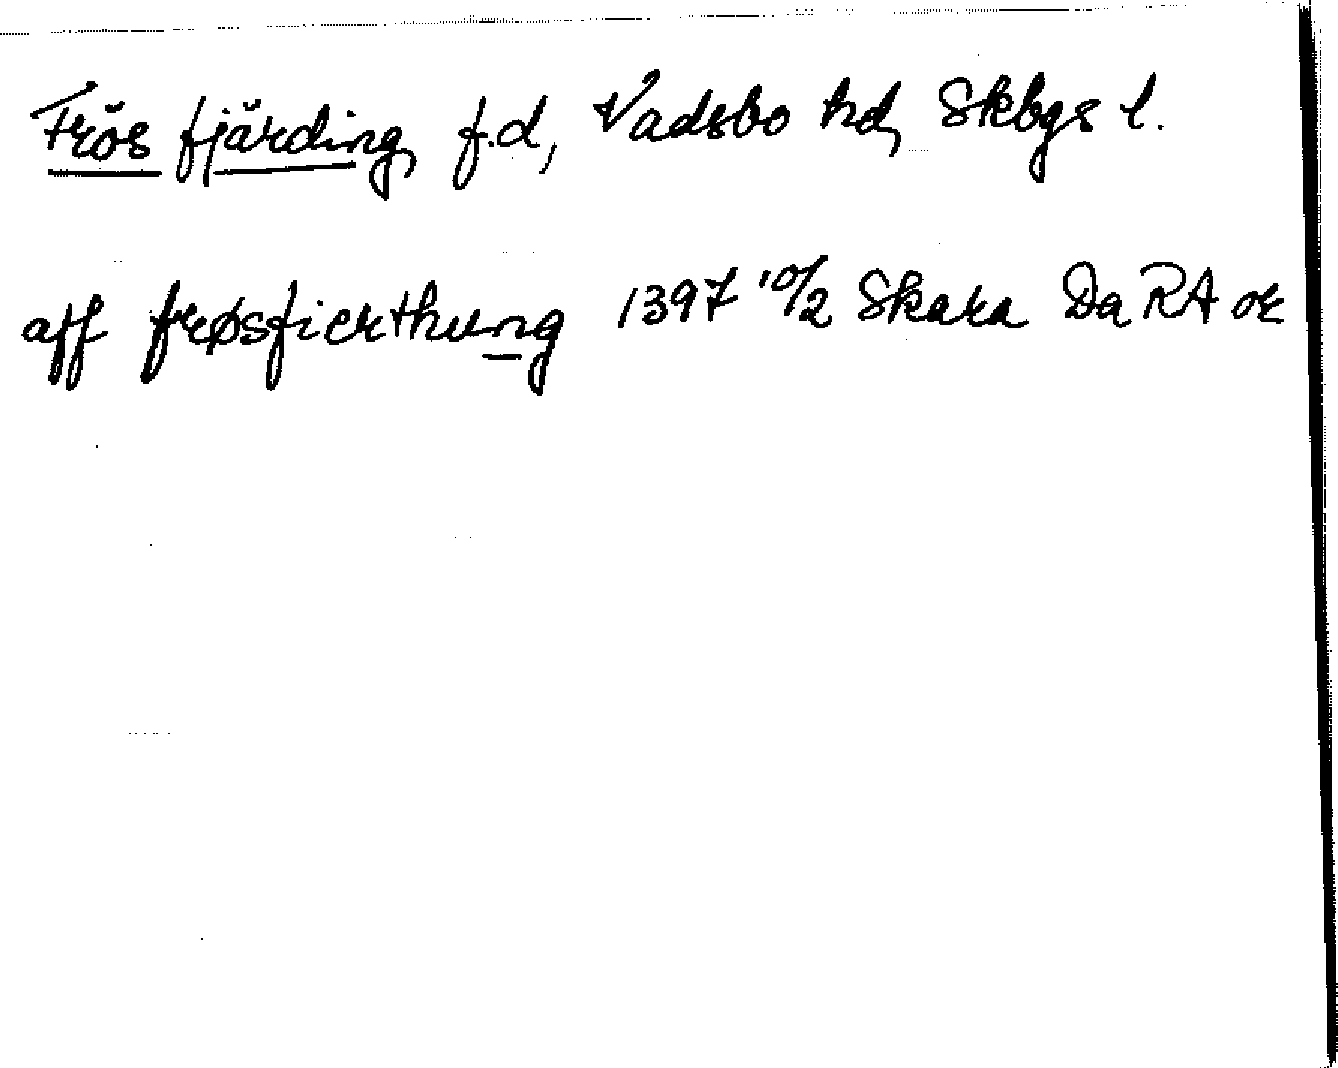 Frös fjärding, f.d, Vadsbo hd, Skbgs l.
aff frøsfierthung 1397 10/2 Skara Da RA or